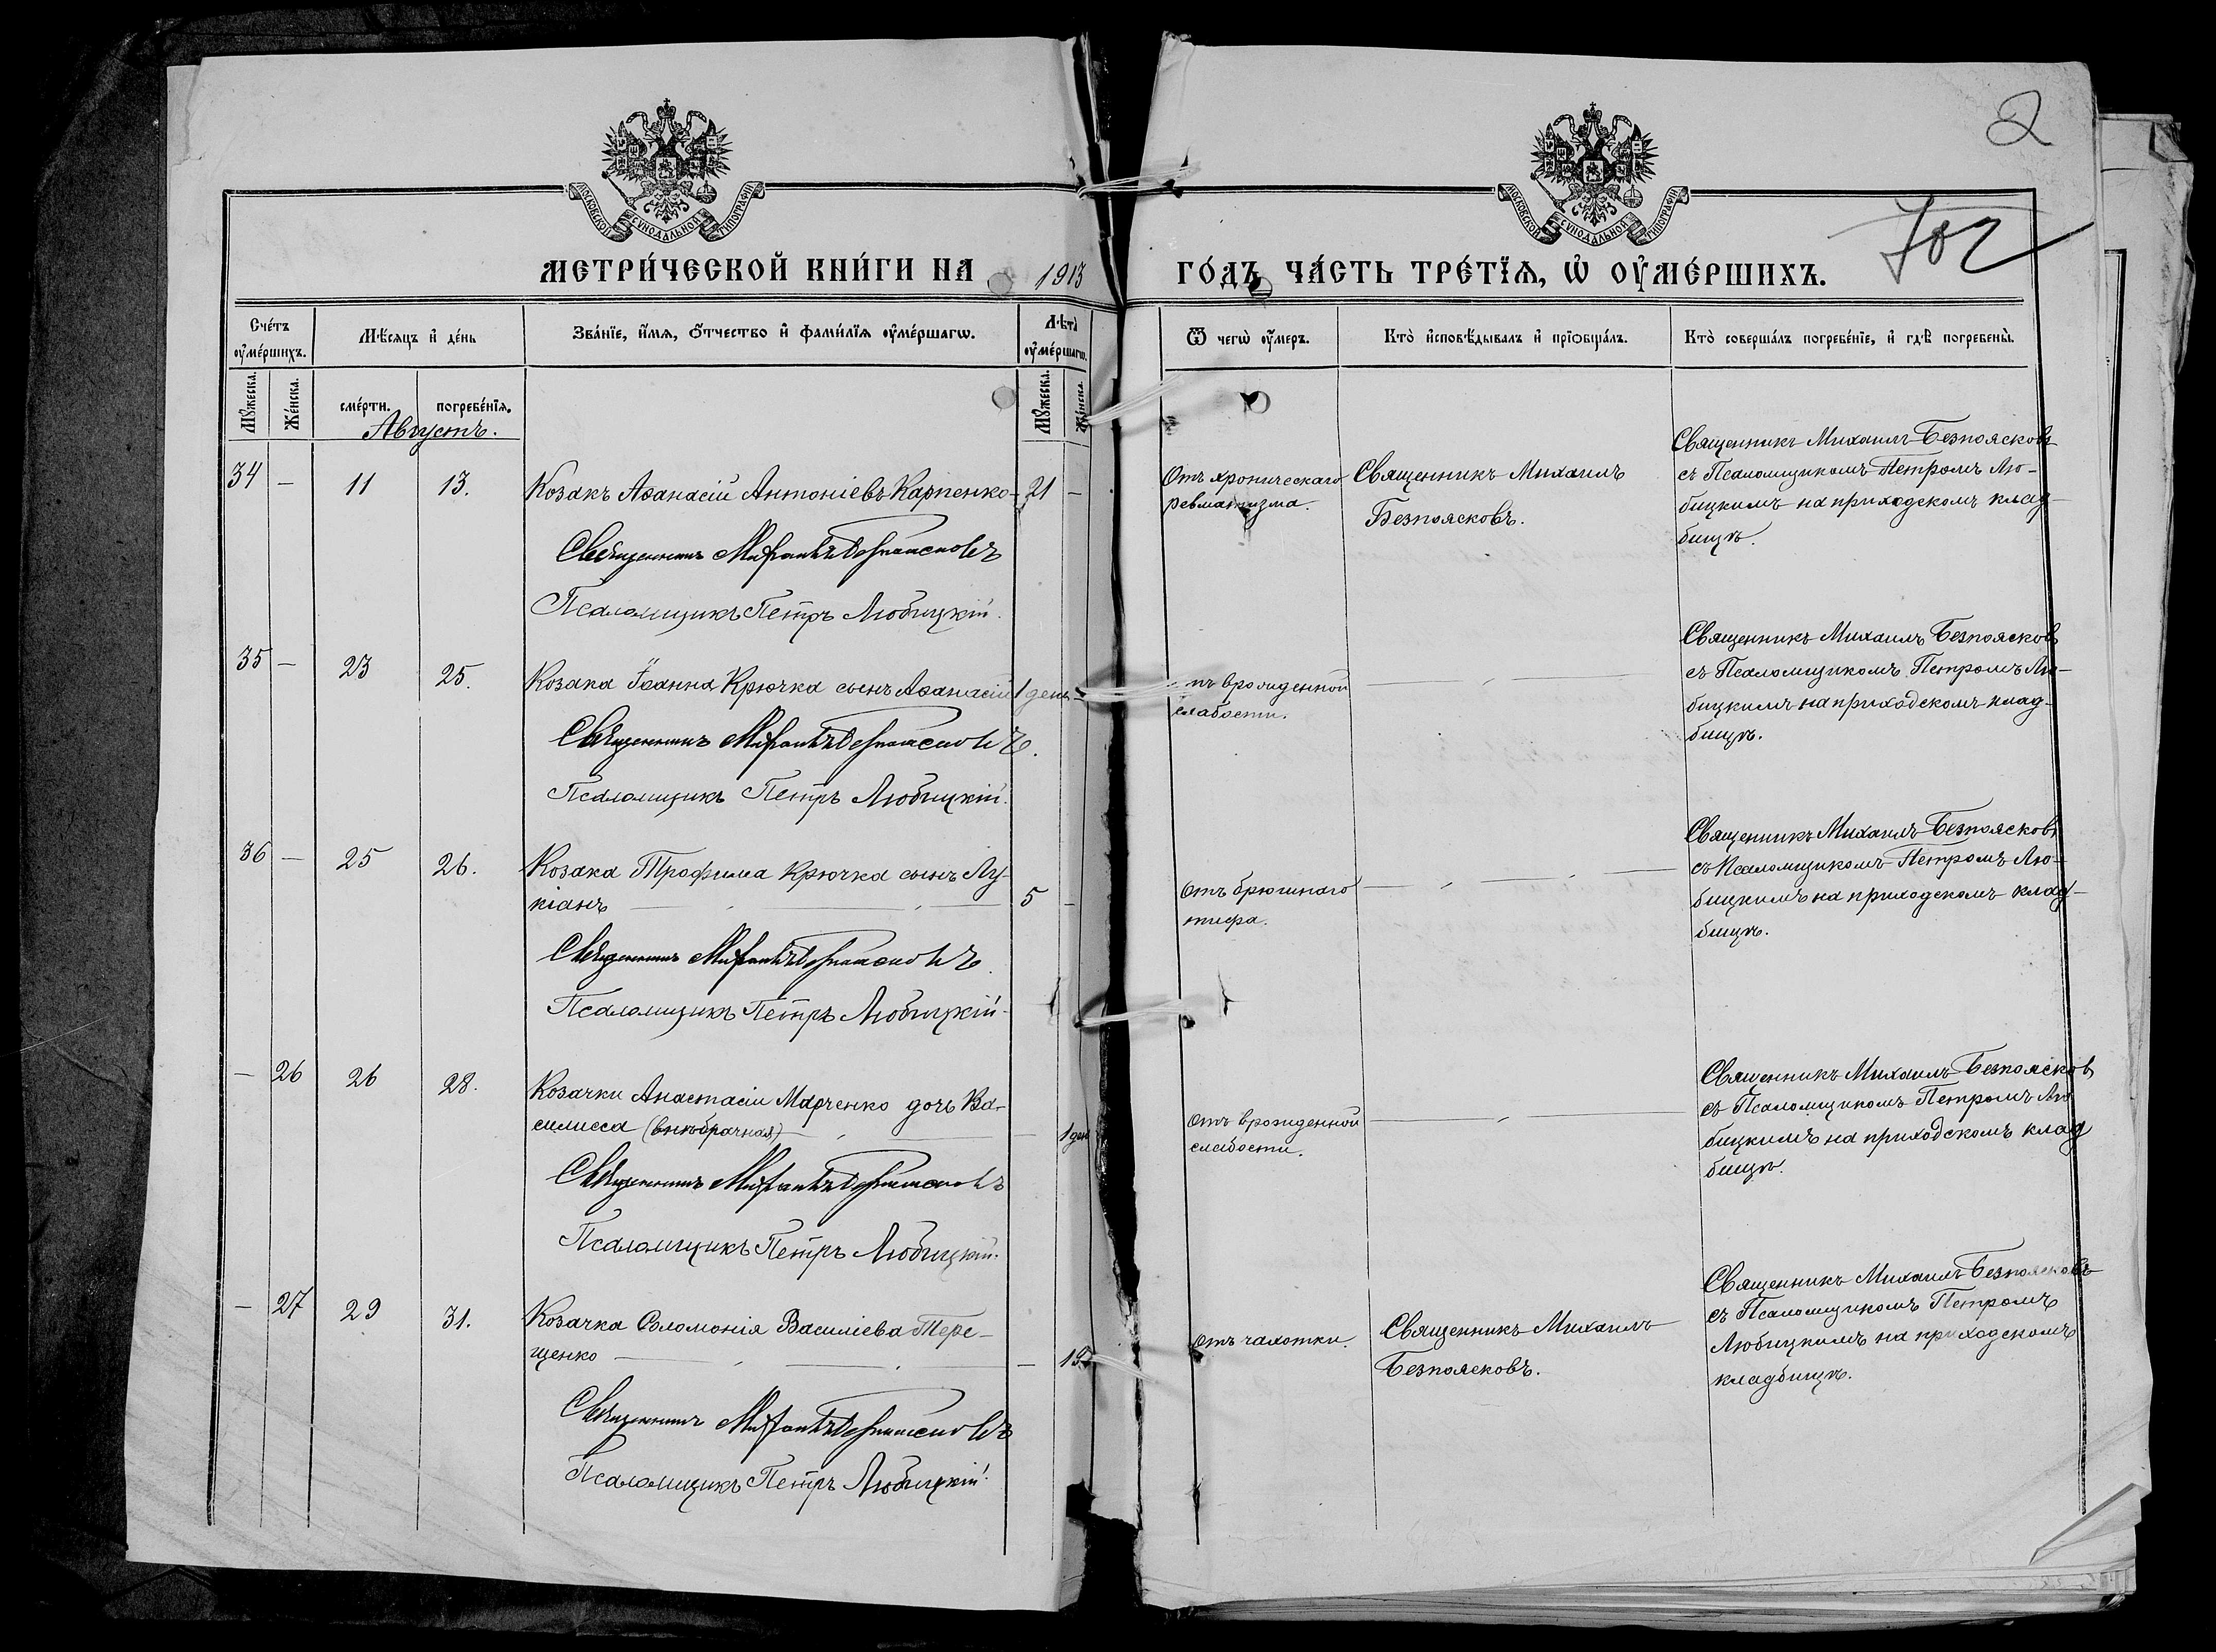 2
702
МОСКОВСКОЙ СУНОДАЛЬНОЙ ТИПОГРАФІИ
МОСКОВСКОЙ СУНОДАЛЬНОЙ ТИПОГРАФІИ
МЕТРИ́ЧЕСКОЙ КНИ́ГИ НА 1913 ГО́ДЪ ЧА́СТЬ ТРЕ́ТЇѦ, Ѡ҆ ОУ҆МЕ́РШИХЪ.
Сче́тъ оу҆ме́ршихъ.
Мѣ́сяцъ и҆ де́нь
Зва́нїе, и҆́мѧ, ѻ҆́тчество и҆ фами́лїѧ оу҆ме́ршагѡ.
Лѣ́та оу҆ме́ршагѡ.
Ѿ чегѡ̀ оу҆́меръ.
Кто̀ и҆сповѣ́дывалъ и҆ прїѻбща́лъ.
Кто̀ соверша́лъ погребе́нїе, и҆ гдѣ̀ погребены̀.
Му́жеска. Же́нска. сме́рти. погребе́нїѧ. Му́жеска. Же́нска.
Августъ.
34 — 11 13.
Козакъ Аѳанасій Антоніевъ Карпенко 21 —
Священникъ Михаилъ Безпоясковъ
Псаломщикъ Петръ Любицкій.
Отъ хроническаго
ревматизма.
Священникъ Михаилъ
Безпоясковъ.
Священникъ Михаилъ Безпоясковъ
съ Псаломщикомъ Петромъ Лю-
бицкимъ на приходскомъ клад-
бищѣ.
35 — 23 25.
Козака Іоанна Крючка сынъ Аѳанасій 1 день —
Священникъ Михаилъ Безпоясковъ.
Псаломщикъ Петръ Любицкій.
тъ врожденной
слабости.
Священникъ Михаилъ Безпоясковъ
съ Псаломщикомъ Петромъ Лю-
бицкимъ на приходскомъ клад-
бищѣ.
36 — 25 26.
Козака Трофима Крючка сынъ Лу-
кіанъ 5 —
Священникъ Михаилъ Безпоясковъ.
Псаломщикъ Петръ Любицкій.
Отъ брюшнаго
тифа.
Священникъ Михаилъ Безпоясковъ
съ Псаломщикомъ Петромъ Лю-
бицкимъ на приходскомъ клад-
бищѣ.
— 26 26 28.
Козачки Анастасіи Марченко дочь Ва-
силисса (внѣбрачная) — 1 ден
Священникъ Михаилъ Безпоясковъ
Псаломщикъ Петръ Любицкій.
Отъ врожденной
слабости.
Священникъ Михаилъ Безпоясков
съ Псаломщикомъ Петромъ Лю
бицкимъ на приходскомъ клад
бищѣ.
— 27 29 31.
Козачка Соломонія Василіева Тере-
щенко —
Священникъ Михаилъ Безпоясковъ
Псаломщикъ Петръ Любицкій.
Отъ чахотки.
Священникъ Михаилъ
Безпоясковъ.
Священникъ Михаилъ Безпоясковъ
съ Псаломщикомъ Петромъ
Любицкимъ на приходскомъ
кладбищѣ.